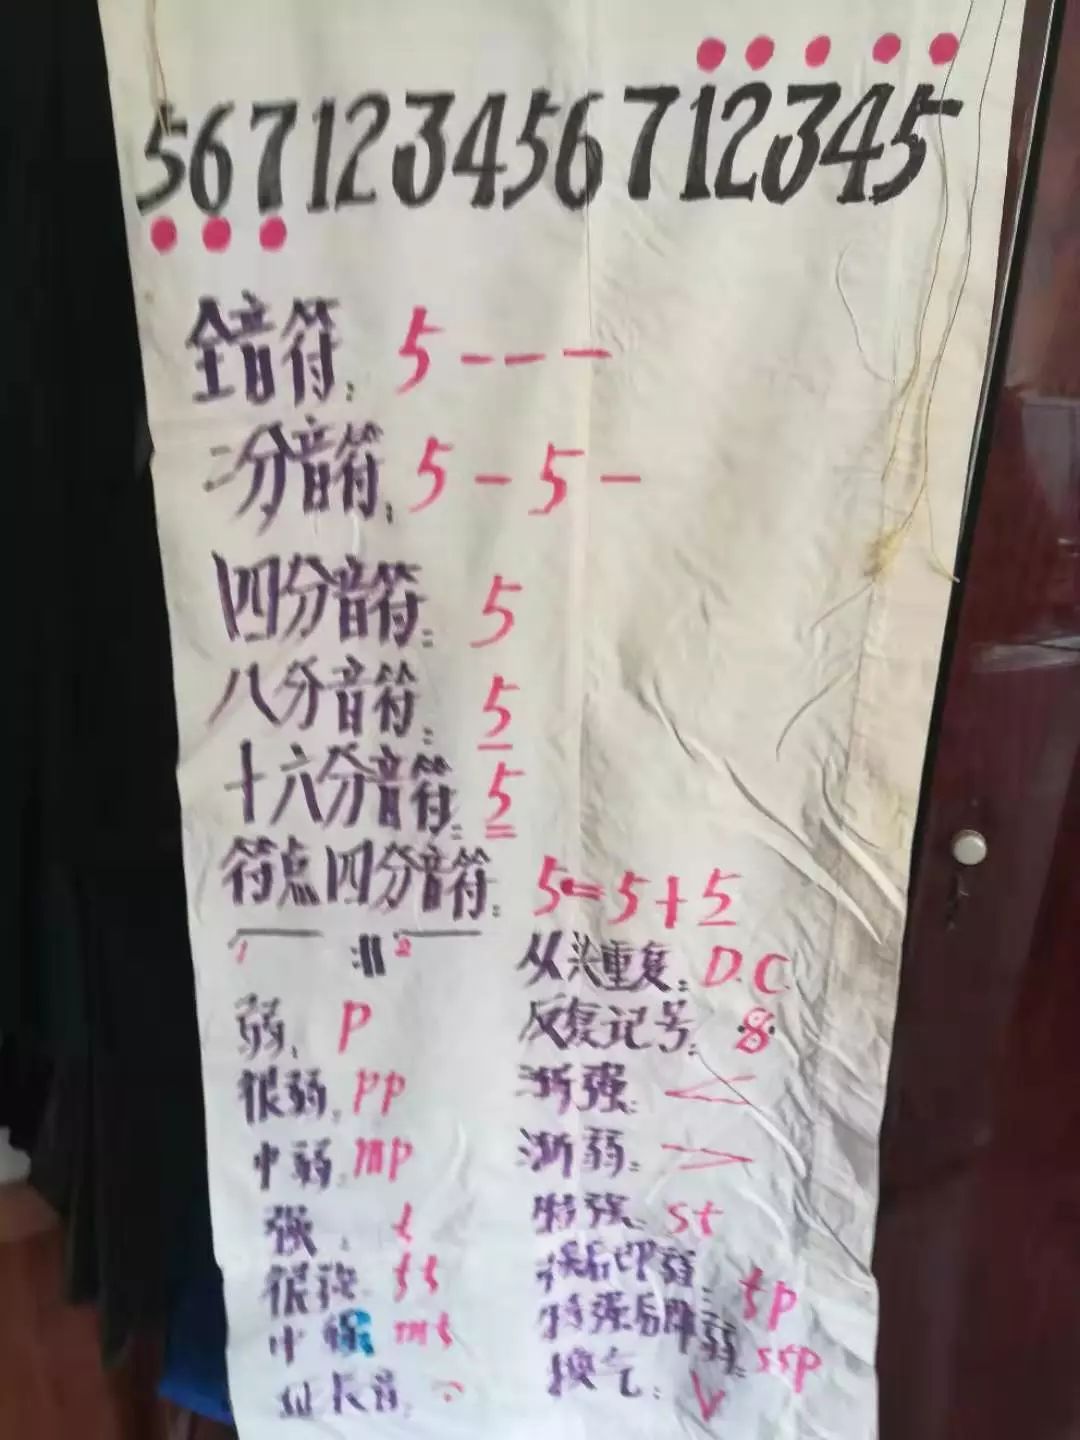 567123456712345
全音符: 5 - - -
二分音符: 5 - 5 -
四分音符: 5
八分音符: 5
十六分音符: 5
符点四分音符: 5·=5+5
1 :|| 2
从头重复: D.C.
弱: p
反复记号:
很弱: pp
渐强: <
中弱: mp
渐弱: >
强: f
特强: sf
很强: ff
强后即弱: fp
中强 mf
特强后即弱: sfp
延长音:
换气: V